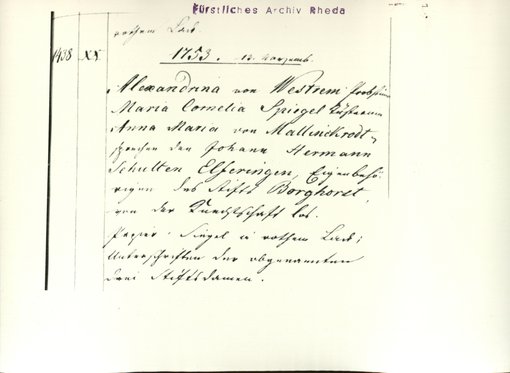 Fürstliches Archiv Rheda
rothem Lack.
1438 XX 1753. 12. Novemb.
Alexandrina von Westrem Probstinn
Maria Cornelia Spiegel Küsterinn
Anna Maria von Mallinckrodt
sprechen den Johann Hermann
Schulten Elferingen, Eigenbehö-
rigen des Stifts Borghorst,
von der Knechtschaft los.
Papier. Siegel in rothem Lack;
Unterschriften der obgenannten
drei Stiftsdamen.